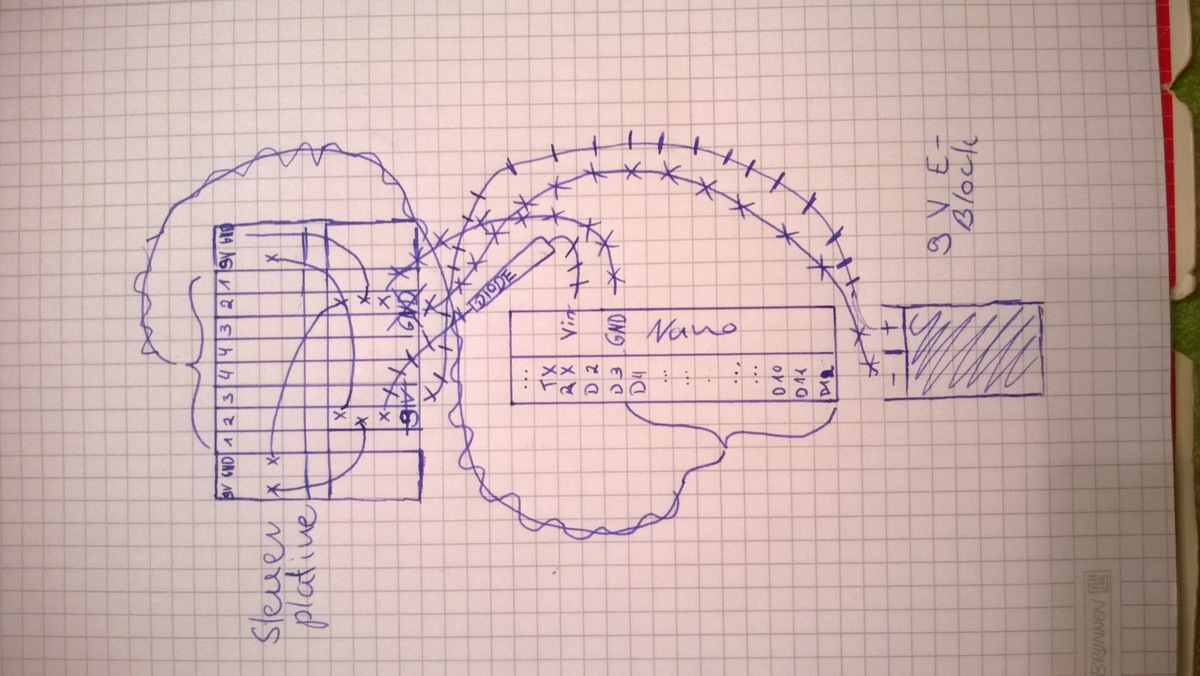 Steuer
platine
9V GND 1 2 3 4 4 3 2 1 9V GND
9V
GND
DIODE
Nano
Vin
GND
...
TX
RX
D2
D3
D4
...
...
.
...
...
D10
D11
D12
+
-
9 V E-
Block
BRUNNEN